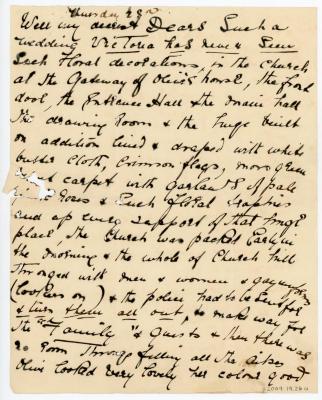 Thursday 23rd
Well my dearest Dears Such a
wedding Victoria has never Seen
Such Floral decorations, in the Church
at the Gateway of Olive's house, the front
door, the Entrance Hall & the main hall
The drawing Room & the huge built
on addition lined & draped with white
butter Cloth, Crimson flags, moss green
carpet with Garlands of pale
Roses & Such floral trophies
and up every support of that huge
place, the Church was packed Early in
the morning & the whole of Church hill
Thronged with men & women &
(lookers on) & the police had to be sent for
& turn them all out, to make way for
The "Family" & Guests & then there was
no Room Throngs filling all the aisles
Olive looked very lovely her colour good
2009.19.26 a